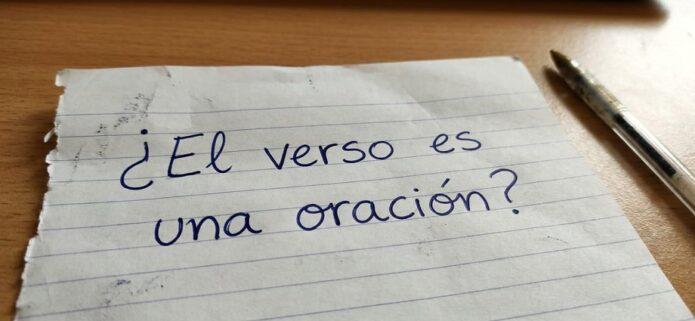 ¿El verso es
una oración?